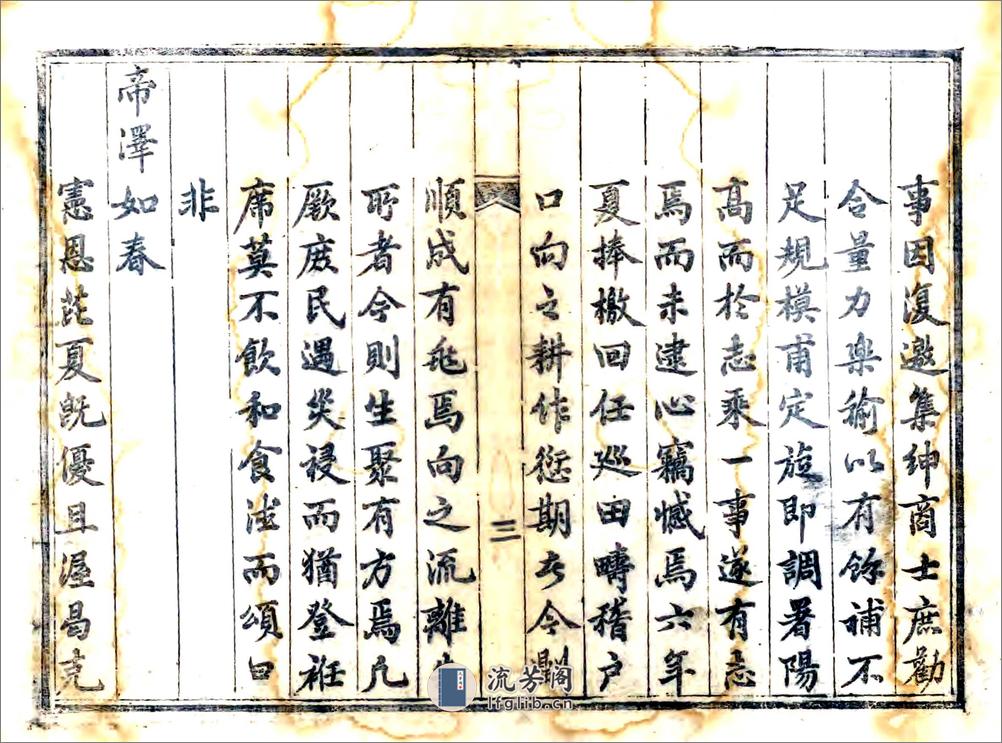 事因復邀集紳商士庶勸
令量力樂輸以有餘補不
足規模甫定旋即調署陽
高而於志乘一事遂有志
焉而未逮心竊憾焉六年
夏捧檄回任巡田疇稽户
口向之耕作愆期者今則
三
順成有兆焉向之流離失
所者今則生聚有方焉凡
厥庶民遇災祲而猶登衽
席莫不飲和食德而頌曰
非
帝澤如春
憲恩芘夏既優且渥曷克
流芳閣
lfglib.cn